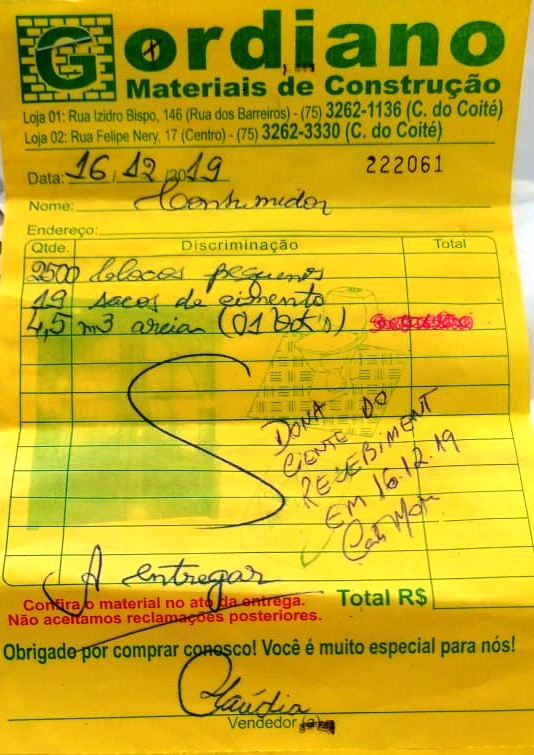 Gordiano
Materiais de Construção
Loja 01: Rua Izidro Bispo, 146 (Rua dos Barreiros) - (75) 3262-1136 (C. do Coité)
Loja 02: Rua Felipe Nery, 17 (Centro) - (75) 3262-3330 (C. do Coité)
Data: 16/12/2019 222061
Nome: Consumidor
Endereço:
Qtde. Discriminação Total
2500 blocos pequenos
19 sacos de cimento
4,5 m3 areia (01
DONA
CIENTE DO
RECEBIMENT
EM 16.12.19
A entregar
Confira o material no ato da entrega.
Não aceitamos reclamações posteriores.
Total R$
Obrigado por comprar conosco! Você é muito especial para nós!
Claúdia
Vendedor (a)